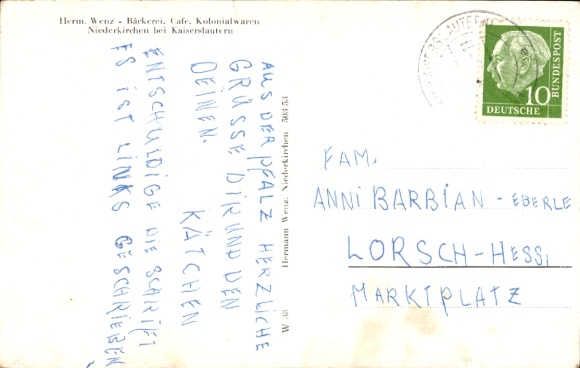 Herm. Wenz - Bäckerei, Cafe, Kolonialwaren
Niederkirchen bei Kaiserslautern
AUS DER PFALZ HERZLICHE
GRÜSSE DIR UND DEN
DEINEN.
KÄTCHEN
ENTSCHULDIGE DIE SCHRIFT
ES IST LINKS GESCHRIEBEN
W 33 Hermann Wenz, Niederkirchen 503 53
10
DEUTSCHE
BUNDESPOST
FAM.
ANNI BARBIAN - EBERLE
LORSCH-HESS,
MARKTPLATZ